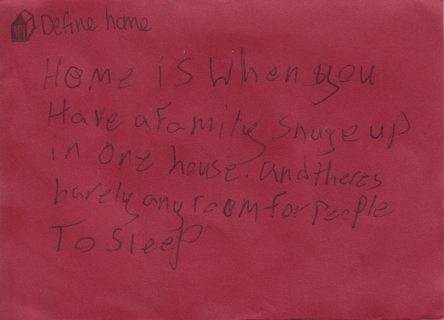 Define home
Home is when you
Have a Family snuge up
in one house. and theres
barely any room for people
To sleep